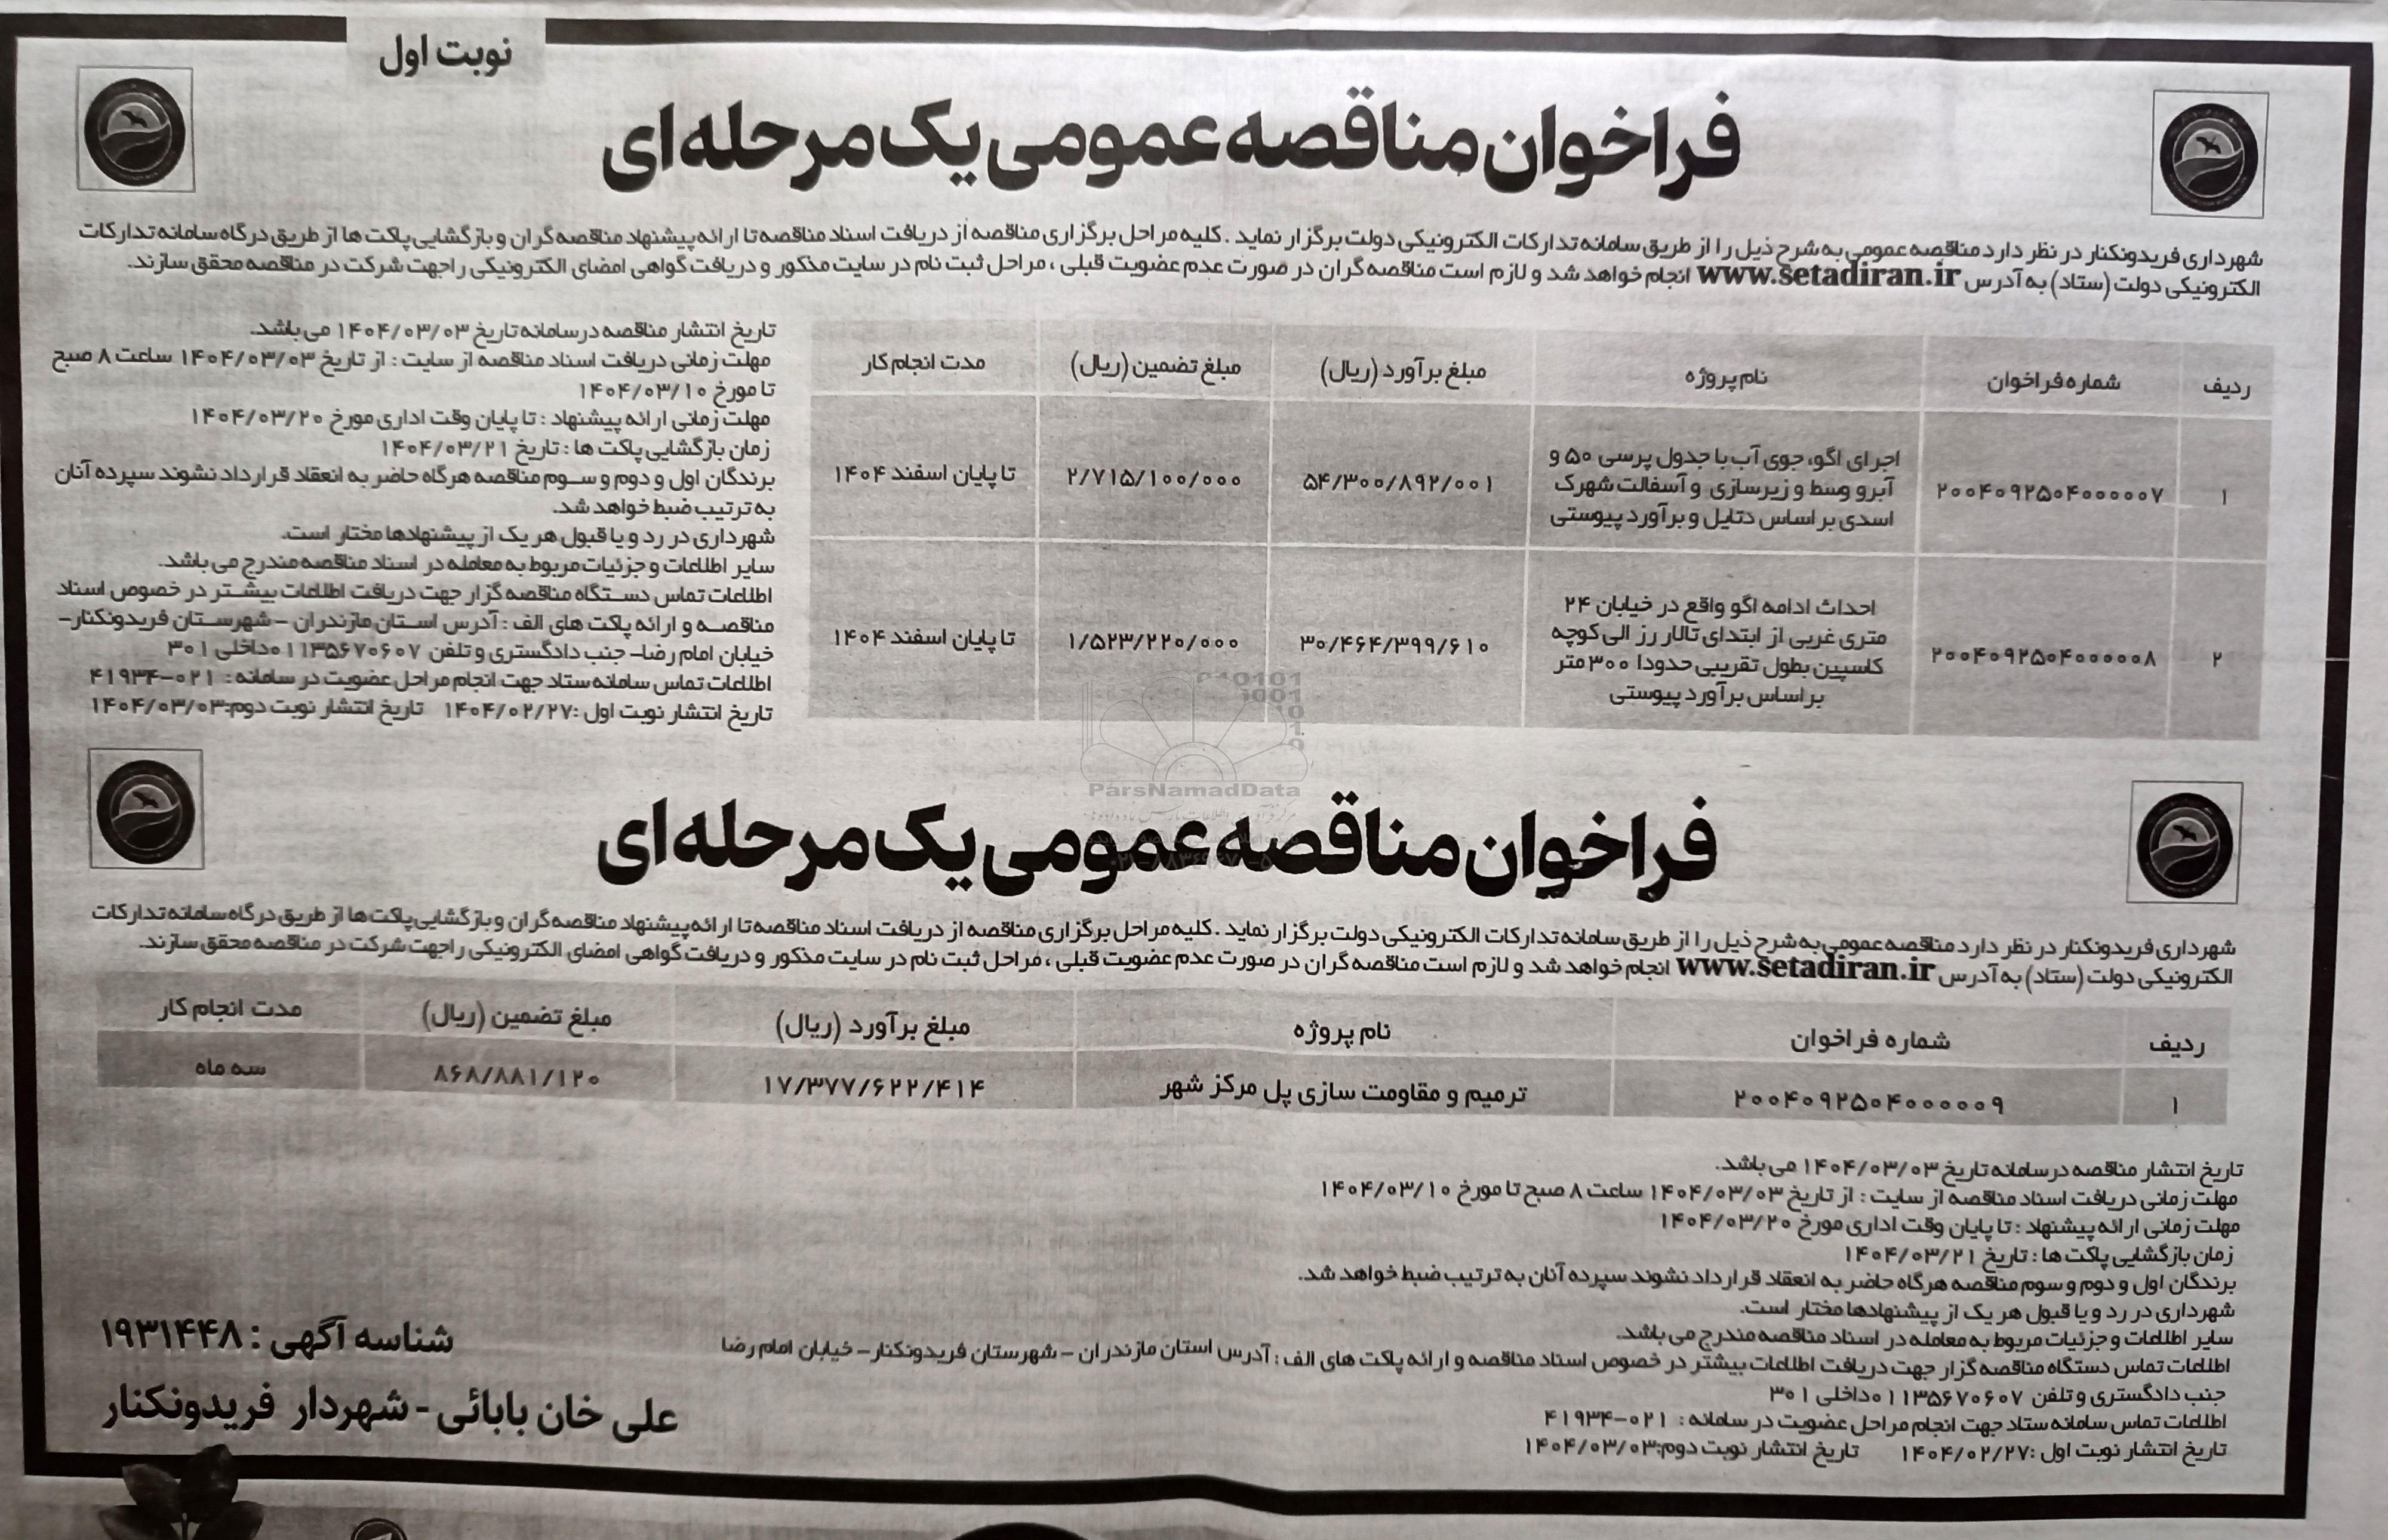 نوبت اول
فراخوان مناقصه عمومی یک مرحله ای
شهرداری فریدونکنار در نظر دارد مناقصه عمومی به شرح ذیل را از طریق سامانه تدارکات الکترونیکی دولت برگزار نماید . کلیه مراحل برگزاری مناقصه از دریافت اسناد مناقصه تا ارائه پیشنهاد مناقصه گران و بازگشایی پاکت ها از طریق درگاه سامانه تدارکات
الکترونیکی دولت (ستاد) به آدرس www.setadiran.ir انجام خواهد شد و لازم است مناقصه گران در صورت عدم عضویت قبلی ، مراحل ثبت نام در سایت مذکور و دریافت گواهی امضای الکترونیکی را جهت شرکت در مناقصه محقق سازند.
ردیف شماره فراخوان نام پروژه مبلغ برآورد (ریال) مبلغ تضمین (ریال) مدت انجام کار
۱ ۲۰۰۴۰۹۲۵۰۴۰۰۰۰۰۷ اجرای اگو، جوی آب با جدول پرسی ۵۰ و
آبرو وسط و زیرسازی و آسفالت شهرک
اسدی بر اساس دتایل و برآورد پیوستی
۵۴/۳۰۰/۸۹۲/۰۰۱ ۲/۷۱۵/۱۰۰/۰۰۰ تا پایان اسفند ۱۴۰۴
۲ ۲۰۰۴۰۹۲۵۰۴۰۰۰۰۰۸ احداث ادامه اگو واقع در خیابان ۲۴
متری غربی از ابتدای تالار رز الی کوچه
کاسپین بطول تقریبی حدودا ۳۰۰ متر
بر اساس برآورد پیوستی
۳۰/۴۶۴/۳۹۹/۶۱۰ ۱/۵۲۳/۲۲۰/۰۰۰ تا پایان اسفند ۱۴۰۴
تاریخ انتشار مناقصه در سامانه تاریخ ۱۴۰۴/۰۳/۰۳ می باشد.
مهلت زمانی دریافت اسناد مناقصه از سایت : از تاریخ ۱۴۰۴/۰۳/۰۳ ساعت ۸ صبح
تا مورخ ۱۴۰۴/۰۳/۱۰
مهلت زمانی ارائه پیشنهاد : تا پایان وقت اداری مورخ ۱۴۰۴/۰۳/۲۰
زمان بازگشایی پاکت ها : تاریخ ۱۴۰۴/۰۳/۲۱
برندگان اول و دوم و سوم مناقصه هرگاه حاضر به انعقاد قرارداد نشوند سپرده آنان
به ترتیب ضبط خواهد شد.
شهرداری در رد و یا قبول هر یک از پیشنهادها مختار است.
سایر اطلاعات و جزئیات مربوط به معامله در اسناد مناقصه مندرج می باشد.
اطلاعات تماس دستگاه مناقصه گزار جهت دریافت اطلاعات بیشتر در خصوص اسناد
مناقصه و ارائه پاکت های الف : آدرس استان مازندران - شهرستان فریدونکنار-
خیابان امام رضا- جنب دادگستری و تلفن ۰۱۱۳۵۶۷۰۶۰۷ داخلی ۳۰۱
اطلاعات تماس سامانه ستاد جهت انجام مراحل عضویت در سامانه : ۰۲۱-۴۱۹۳۴
تاریخ انتشار نوبت اول :۱۴۰۴/۰۲/۲۷ تاریخ انتشار نوبت دوم:۱۴۰۴/۰۳/۰۳
ParsNamadData
فراخوان مناقصه عمومی یک مرحله ای
شهرداری فریدونکنار در نظر دارد مناقصه عمومی به شرح ذیل را از طریق سامانه تدارکات الکترونیکی دولت برگزار نماید . کلیه مراحل برگزاری مناقصه از دریافت اسناد مناقصه تا ارائه پیشنهاد مناقصه گران و بازگشایی پاکت ها از طریق درگاه سامانه تدارکات
الکترونیکی دولت (ستاد) به آدرس www.setadiran.ir انجام خواهد شد و لازم است مناقصه گران در صورت عدم عضویت قبلی ، مراحل ثبت نام در سایت مذکور و دریافت گواهی امضای الکترونیکی را جهت شرکت در مناقصه محقق سازند.
ردیف شماره فراخوان نام پروژه مبلغ برآورد (ریال) مبلغ تضمین (ریال) مدت انجام کار
۱ ۲۰۰۴۰۹۲۵۰۴۰۰۰۰۰۹ ترمیم و مقاومت سازی پل مرکز شهر ۱۷/۳۷۷/۶۲۲/۴۱۴ ۸۶۸/۸۸۱/۱۲۰ سه ماه
تاریخ انتشار مناقصه در سامانه تاریخ ۱۴۰۴/۰۳/۰۳ می باشد.
مهلت زمانی دریافت اسناد مناقصه از سایت : از تاریخ ۱۴۰۴/۰۳/۰۳ ساعت ۸ صبح تا مورخ ۱۴۰۴/۰۳/۱۰
مهلت زمانی ارائه پیشنهاد : تا پایان وقت اداری مورخ ۱۴۰۴/۰۳/۲۰
زمان بازگشایی پاکت ها : تاریخ ۱۴۰۴/۰۳/۲۱
برندگان اول و دوم و سوم مناقصه هرگاه حاضر به انعقاد قرارداد نشوند سپرده آنان به ترتیب ضبط خواهد شد.
شهرداری در رد و یا قبول هر یک از پیشنهادها مختار است.
سایر اطلاعات و جزئیات مربوط به معامله در اسناد مناقصه مندرج می باشد.
اطلاعات تماس دستگاه مناقصه گزار جهت دریافت اطلاعات بیشتر در خصوص اسناد مناقصه و ارائه پاکت های الف : آدرس استان مازندران - شهرستان فریدونکنار- خیابان امام رضا
جنب دادگستری و تلفن ۰۱۱۳۵۶۷۰۶۰۷ داخلی ۳۰۱
اطلاعات تماس سامانه ستاد جهت انجام مراحل عضویت در سامانه : ۰۲۱-۴۱۹۳۴
تاریخ انتشار نوبت اول :۱۴۰۴/۰۲/۲۷ تاریخ انتشار نوبت دوم:۱۴۰۴/۰۳/۰۳
شناسه آگهی : ۱۹۳۱۴۴۸
علی خان بابائی - شهردار فریدونکنار